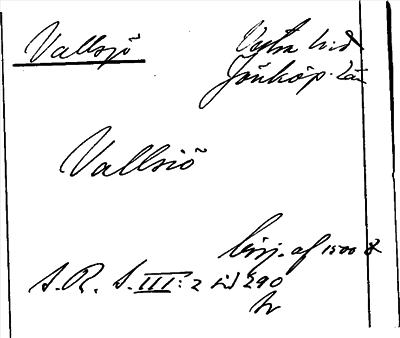 Vallsjö
Västra hrd
Jönköp. län
Vallsiö
börj. af 1500 t
S.R.S. III: 2 sid 290